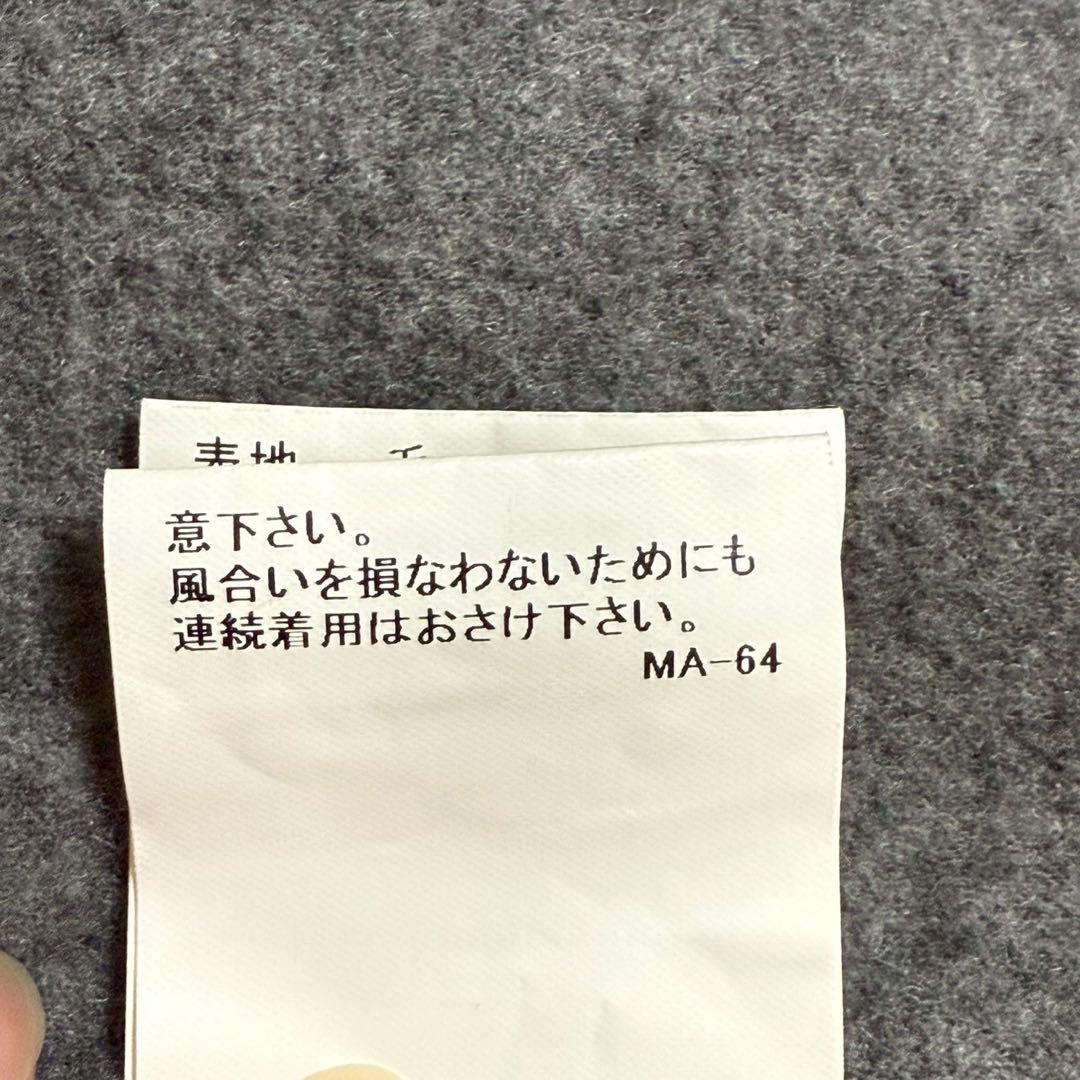 表地
意下さい。
風合いを損なわないためにも
連続着用はおさけ下さい。
MA-64